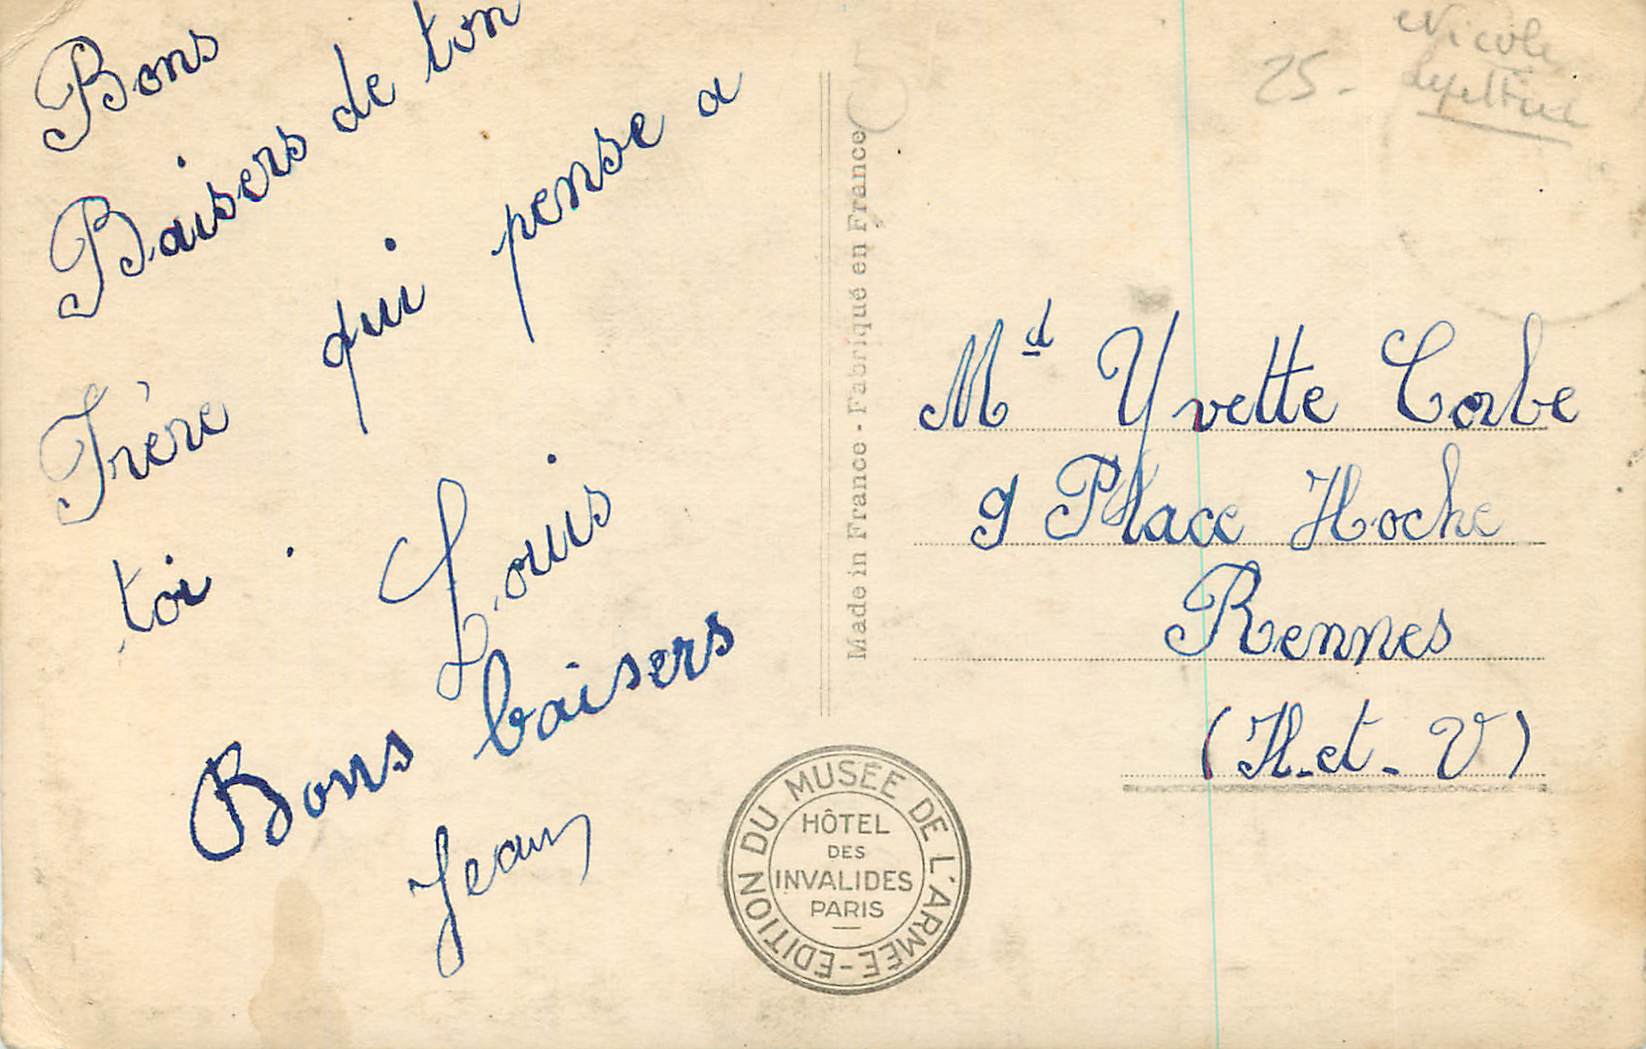 Bons
Baisers de ton
Frère qui pense a
toi . Louis
Bons baisers
Jean
Made in France - Fabriqué en France
25.
Nicole
Md Yvette Corbe
9 Place Hoche
Rennes
(H.et.V)
EDITION DU MUSÉE DE L'ARMÉE -
HÔTEL
DES
INVALIDES
PARIS